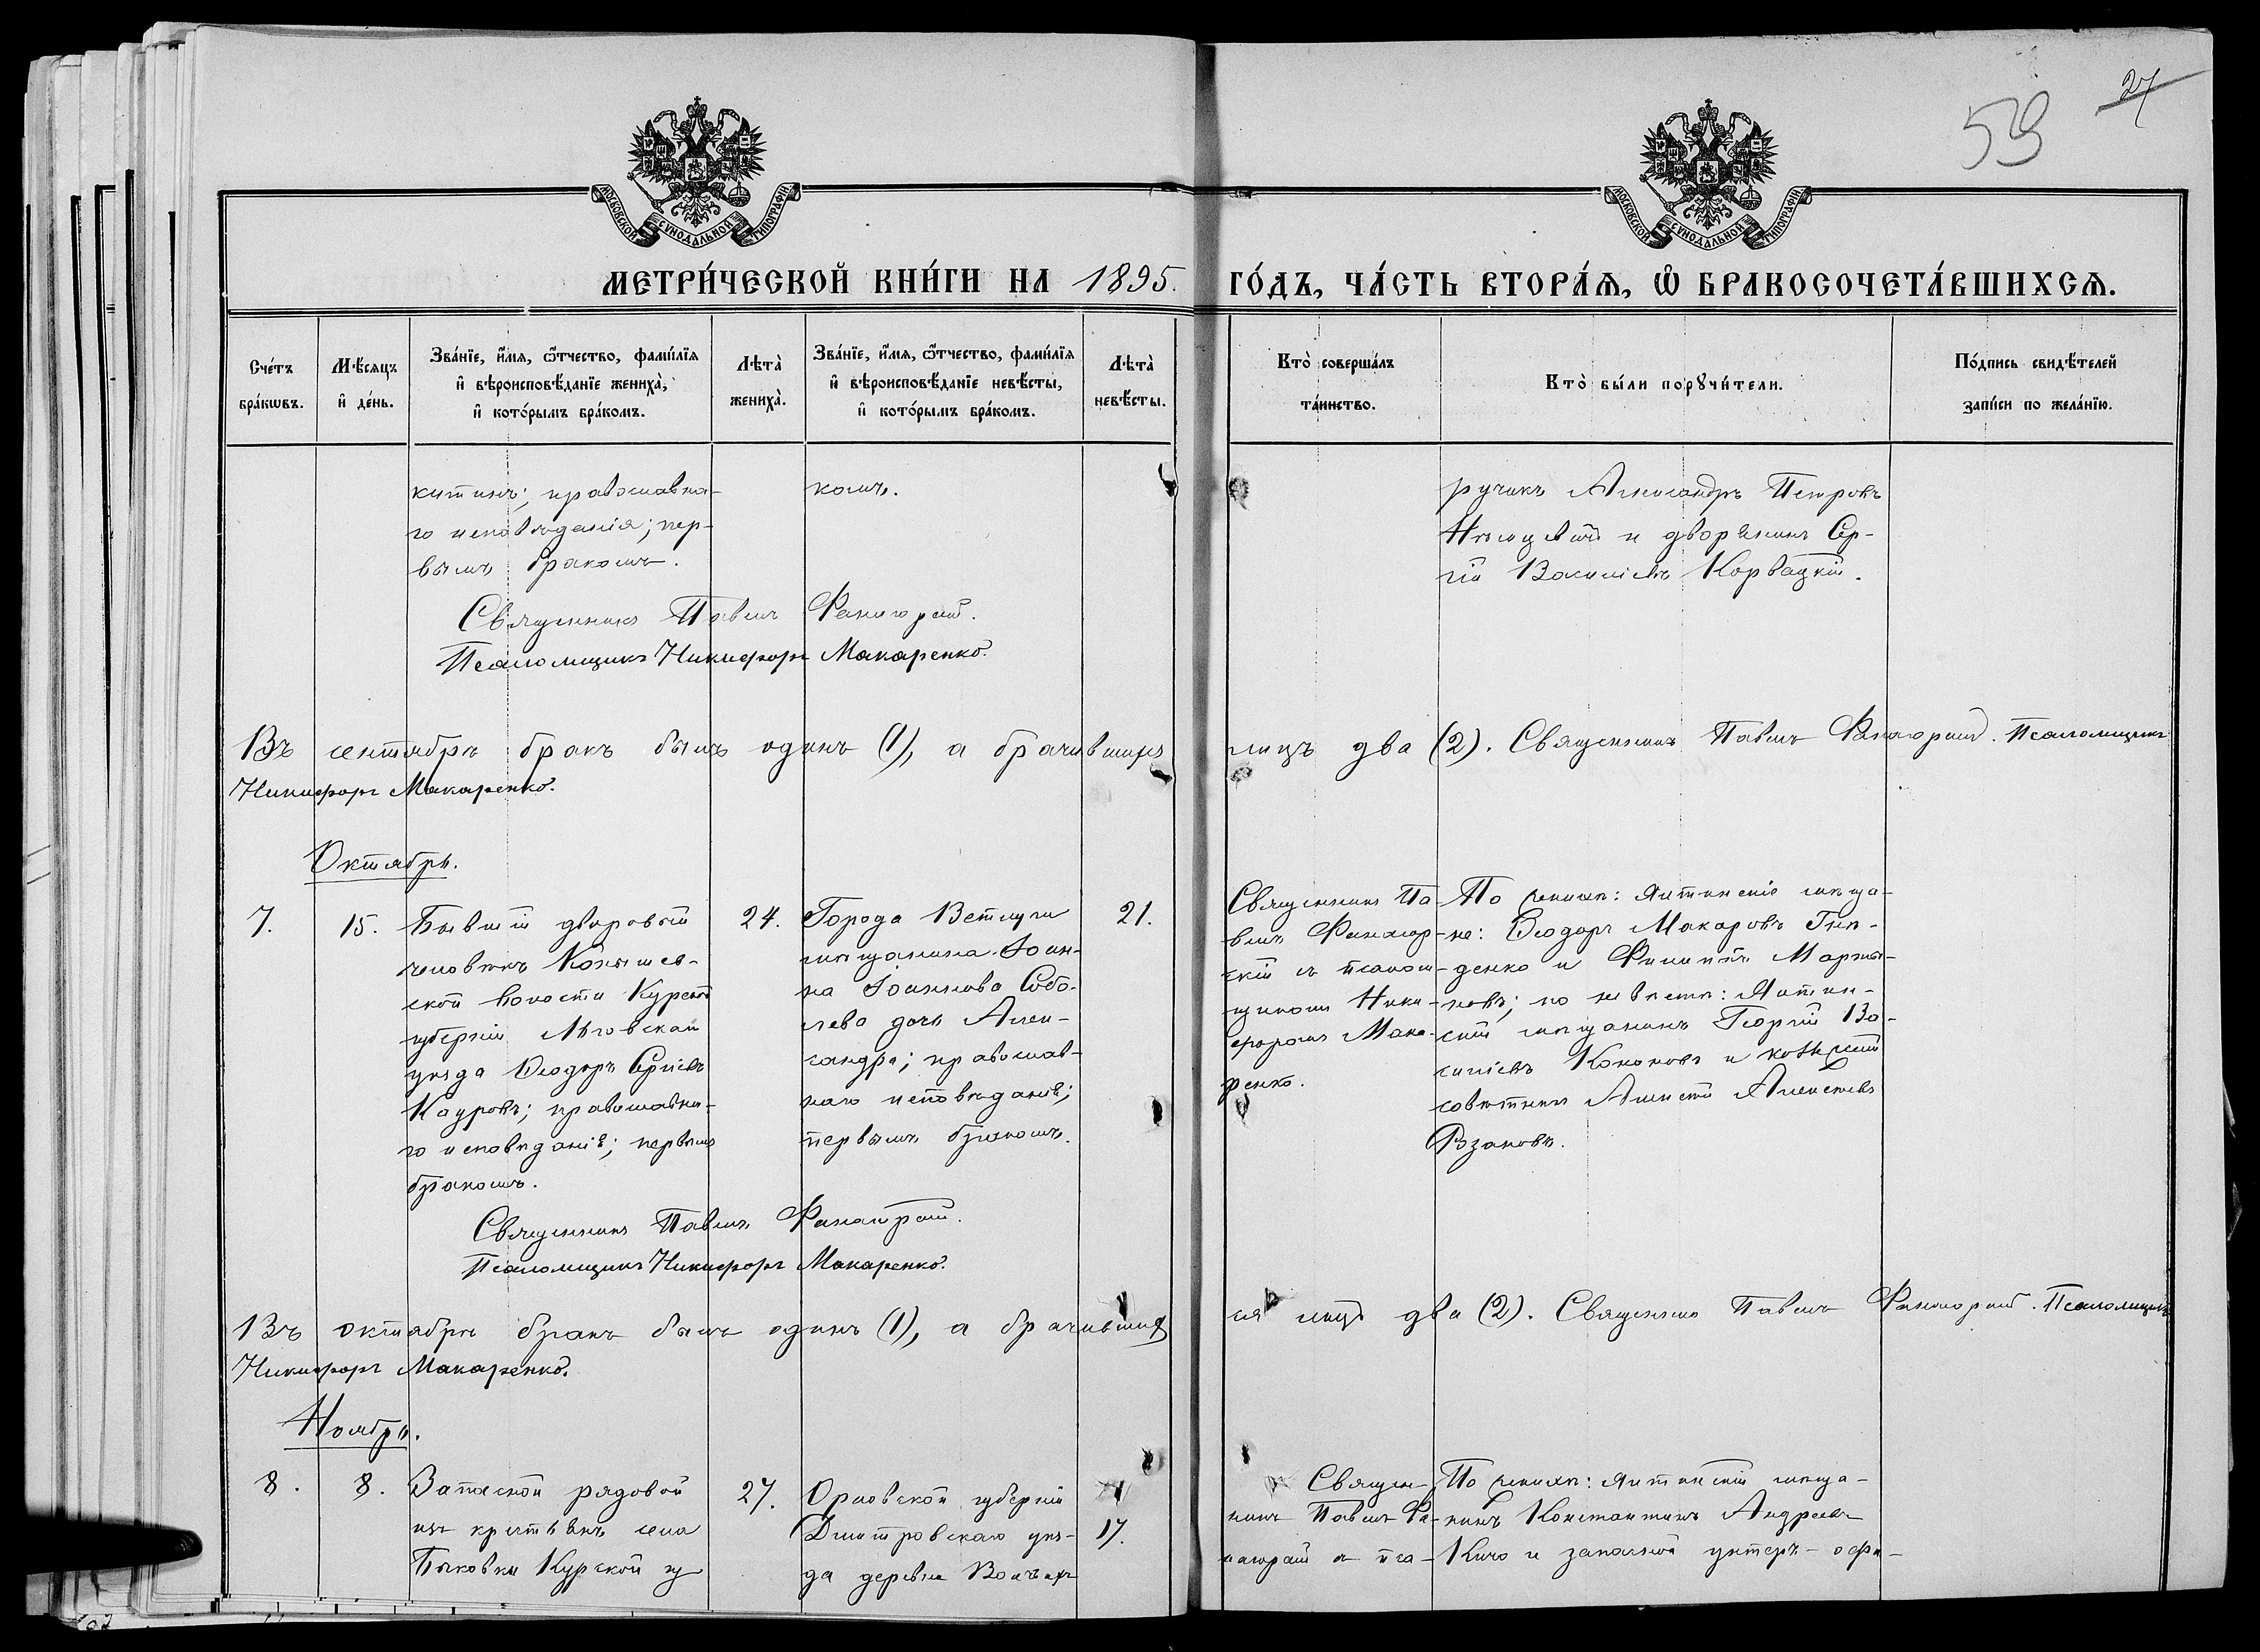 27
59
МОСКОВСКОЙ СѴНОДАЛЬНОЙ ТИПОГРАФІИ
МОСКОВСКОЙ СѴНОДАЛЬНОЙ ТИПОГРАФІИ
МЕТРИ́ЧЕСКОЙ КНИ́ГИ НА 1895. ГО́ДЪ, ЧА́СТЬ ВТОРА́Ѧ, Ѽ БРАКОСОЧЕТА́ВШИХСѦ.
Сче́тъ бра́кѡвъ.
Мѣ́сяцъ и҆ де́нь.
Зва́нїе, и҆́мя, ѻ҆́тчество, фами́лїя и҆ вѣроисповѣ́данїе жениха̀, и҆ кото́рымъ бра́комъ.
Лѣта̀ жениха̀.
Зва́нїе, и҆́мя, ѻ҆́тчество, фами́лїя и҆ вѣроисповѣ́данїе невѣ́сты, и҆ кото́рымъ бра́комъ.
Лѣта̀ невѣ́сты.
Кто̀ соверша́лъ та́инство.
Кто̀ бы́ли порꙋчи́тели.
По́дпись свидѣ́телей запи́си по жела́нїю.
китинъ; православна-
го исповѣданія; пер-
вымъ бракомъ.
комъ.
ручикъ Александръ Петровъ
и дворянинъ Сер-
гій Васильевъ Корвацкій.
Священникъ Павелъ Фанагорскій.
Псаломщикъ Никифоръ Макаренко.
Въ сентябрѣ бракъ былъ одинъ (1), а брачившихся лицъ два (2). Священникъ Павелъ Фанагорскій. Псаломщикъ
Никифоръ Макаренко.
Октябрь.
7.
15.
Бывшій дворовый
человѣкъ Конышев-
ской волости Курской
губерніи Льговскаго
уѣзда Ѳеодоръ Сергіевъ
Кауровъ; православна-
го исповѣданія; первымъ
бракомъ.
24.
Города Ветлуги
мѣщанина Іоан-
на Іоаннова Собо-
лева дочь Алек-
сандра; православ-
наго исповѣданія;
первымъ бракомъ.
21.
Священникъ Па-
велъ Фанагор-
скій съ псалом-
щикомъ Ники-
форомъ Мака-
ренко.
По женихѣ: Ялтинскіе мѣща-
не: Ѳеодоръ Макаровъ
денко и Филиппъ Марты-
новъ; по невѣстѣ: Ялтин-
скій мѣщанинъ Георгій Ва-
сильевъ Кононовъ и
совѣтникъ Алексѣй Алексѣевъ
Рзановъ.
Священникъ Павелъ Фанагорскій.
Псаломщикъ Никифоръ Макаренко.
Въ октябрѣ бракъ былъ одинъ (1), а брачившихся лицъ два (2). Священникъ Павелъ Фанагорскій. Псаломщикъ
Никифоръ Макаренко.
Ноябрь.
8.
8.
Запасной рядовой
изъ крестьянъ села
Быковки Курской гу
27.
Орловской губерніи
Дмитровскаго уѣз-
да деревни
17.
Священ-
никъ Павелъ Фа-
нагорскій съ пса-
По женихѣ: Ялтинскій мѣща-
нинъ Константинъ Андреевъ
и запасной унтеръ-офи-